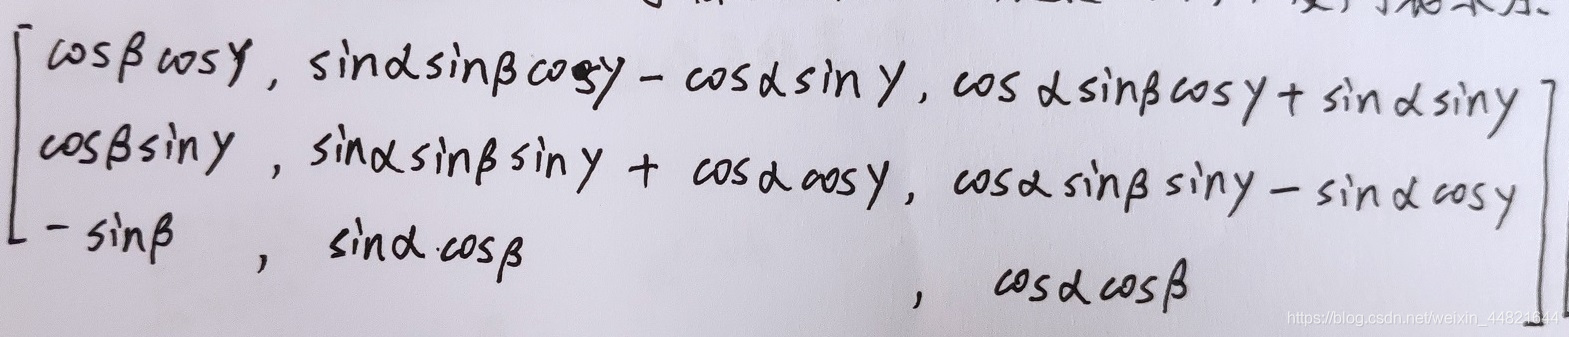 cosβcosγ, sinαsinβcosγ - cosαsinγ, cosαsinβcosγ + sinαsinγ
cosβsinγ, sinαsinβsinγ + cosαcosγ, cosαsinβsinγ - sinαcosγ
-sinβ, sinα·cosβ, cosαcosβ
https://blog.csdn.net/weixin_44821644